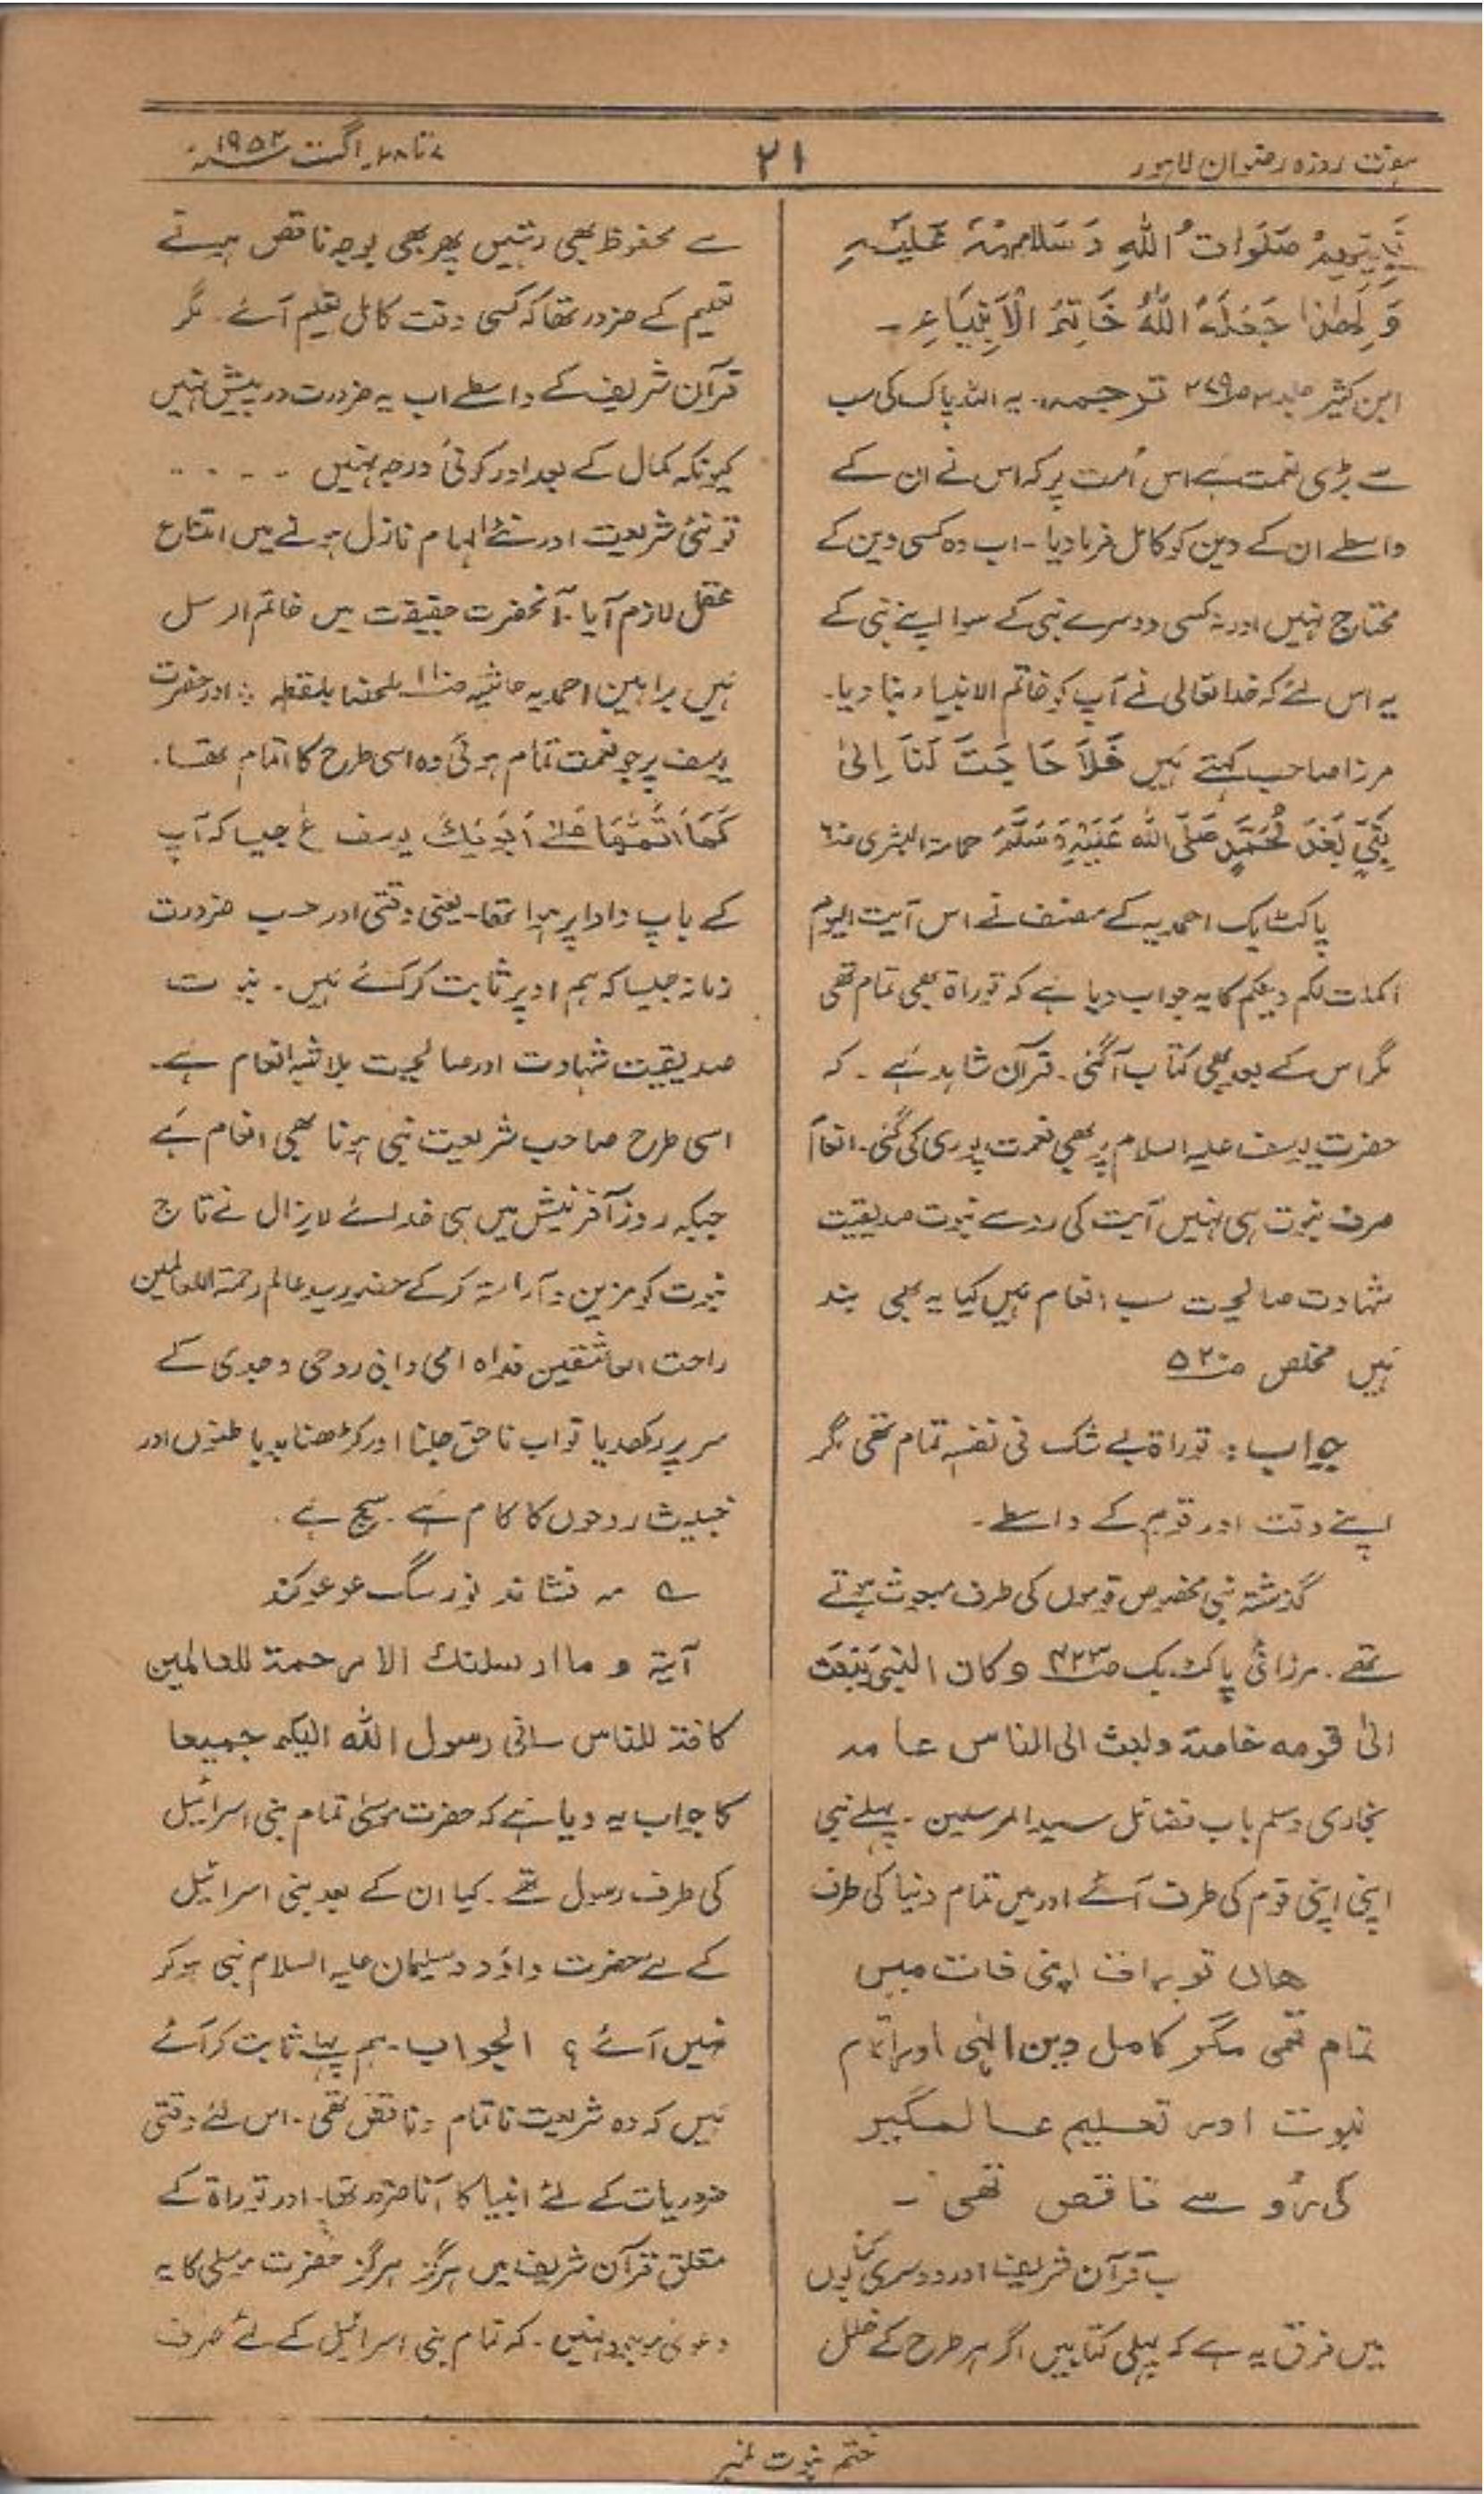 ہفت روزہ رضوان لاہور
۲۱
۷ تا ۲۸۔ اگست ۱۹۵۲ء
نَبِیِّھِمْ صَلَوَاتُ اللّٰہِ وَ سَلَامُہٗ عَلَیْہِ
وَ لِھٰذَا جَعَلَہُ اللّٰہُ خَاتِمُ الْاَنْبِیَاءِ ۔
ابن کثیر جلد ۳ ص۲۷۹ ترجمہ۔ یہ اللہ پاک کی سب
سے بڑی نعمت ہے اس اُمت پر کہ اس نے ان کے
واسطے ان کے دین کو کامل فرما دیا ۔ اب وہ کسی دین کے
محتاج نہیں اور نہ کسی دوسرے نبی کے سوا اپنے نبی کے
یہ اس لئے کہ خدا تعالی نے آپ کو خاتم الانبیاء بنا دیا۔
مرزا صاحب کہتے ہیں فَلَا حَاجَتَ لَنَا اِلیٰ
نَبِیٍّ بَعْدَ مُحَمَّدٍ صَلَّی اللّٰہ عَلَیْہِ وَسَلَّمَ حمامۃ البشری
پاکٹ بک احمدیہ کے مصنف نے اس آیت الیوم
اکملت لکم دینکم کا یہ جواب دیا ہے کہ توراۃ بھی تمام تھی
مگر اس کے بعد بھی کتاب آگئی۔ قرآن شاہد ہے ۔ کہ
حضرت یوسف علیہ السلام پر بھی نعمت پوری کی گئی۔ انعام
صرف نبوت ہی نہیں آیت کی رو سے نبوت صدیقیت
شہادت صالحیت سب انعام ہیں کیا یہ بھی بند
ہیں مخلص ص۵۲۰
جواب : توراۃ بے شک فی نفسہ تمام تھی مگر
اپنے وقت اور قوم کے واسطے ۔
گذشتہ نبی مخصوص قوموں کی طرف مبعوث ہوتے
تھے ۔ مرزائی پاکٹ بک ص۴۲۳ و کان النبی یُبْعَث
الیٰ قومہ خاصۃ و لبث الی الناس عامہ
بخاری و سلم باب فضائل سید المرسلین ۔ پہلے نبی
اپنی اپنی قوم کی طرف آئے اور میں تمام دنیا کی طرف
ھاں توراۃ اپنی ذات میں
تمام تھی مگر کامل دین الٰہی اور اتمام
نبوت اور تعلیم عالمگیر
کی رُو سے ناقص تھی ۔
ب قرآن شریف اور دوسری کتابوں
میں فرق یہ ہے کہ پہلی کتابیں اگر ہر طرح کے خلل
سے محفوظ بھی رہتیں پھر بھی بوجہ ناقص ہونے
تعلیم کے ضرور تھا کہ کسی وقت کامل تعلیم آئے ۔ مگر
قرآن شریف کے واسطے اب یہ ضرورت درپیش نہیں
کیونکہ کمال کے بعد اور کوئی درجہ نہیں ۔ ۔ ۔ ۔
تو نئی شریعت اور نئے الہام نازل ہونے میں امتناع
عقل لازم آیا ۔ آنحضرت حقیقت میں خاتم الرسل
ہیں براہین احمدیہ حاشیہ ملحضا بلفظہ : اور حضرت
یوسف پر جو نعمت تمام ہوئی وہ اسی طرح کا اتمام تھا ۔
کَمَا اَتَمَّھَا عَلیٰ اَبَوَیْکَ یوسف ع جیسا کہ آپ
کے باپ دادا پر ہوا تھا ۔ یعنی وقتی اور حسب ضرورت
زمانہ جیسا کہ ہم اوپر ثابت کر گئے ہیں ۔ نبوت
صدیقیت شہادت اور صالحیت بلاشبہ انعام ہے ۔
اسی طرح صاحب شریعت نبی ہونا بھی انعام ہے
جبکہ روز آفرنیش میں ہی خدائے لایزال نے تاج
نبوت کو مزین و آراستہ کر کے حضور سید عالم رحمۃ اللعالمین
راحت العاشقین فداہ امی و ابی روحی و جدی کے
سر پر رکھدیا تو اب ناحق جلنا اور کڑھنا بدباطنوں اور
خبیث روحوں کا کام ہے ۔ سچ ہے ۔
ے مہ فشاند نور سگ عوعو کند
آیۃ و ما ارسلنک الا رحمۃ للعالمین
کافۃ للناس سانی رسول اللہ الیکم جمیعا
کا جواب یہ دیا ہے کہ حضرت موسیٰ تمام بنی اسرائیل
کی طرف رسول تھے ۔ کیا ان کے بعد بنی اسرائیل
کے لے حضرت داؤد و سلیمان علیہ السلام نبی ہو کر
نہیں آئے ؟ الجواب ۔ ہم پہلے ثابت کر آئے
ہیں کہ وہ شریعت ناتمام و ناقص تھی ۔ اس لئے وقتی
ضروریات کے لئے انبیا کا آنا ضرور تھا ۔ اور توراۃ کے
متعلق قرآن شریف میں ہرگز ہرگز حضرت موسیٰ کا یہ
دعویٰ موجود نہیں ۔ کہ تمام بنی اسرائیل کے لئے صرف
ختم نبوت نمبر